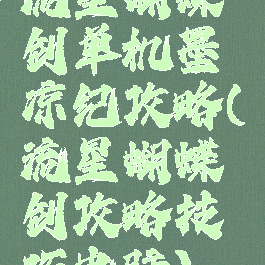 流星蝴蝶
创单机墨
凉纪攻略(
流星蝴蝶
创攻略技